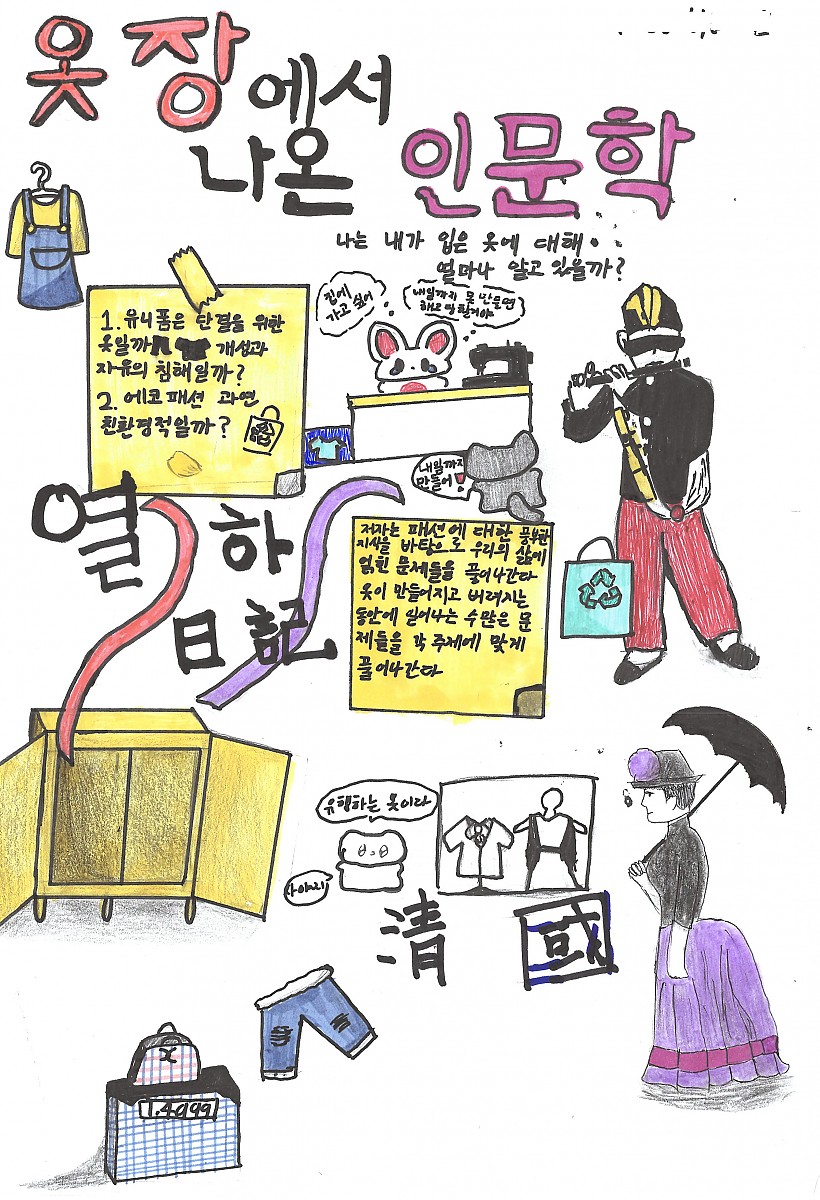 옷장에서
나온 인문학
나는 내가 입은 옷에 대해
얼마나 알고 있을까?
1. 유니폼은 단결을 위한
옷일까 개성과
자유의 침해일까?
2. 에코 패션 과연
친환경적일까?
집에
가고 싶어
내일까지 못 만들면
해고 당할거야
내일까지
만들어!
열하
日記
저자는 패션에 대한 풍부한
지식을 바탕으로 우리의 삶에
얽힌 문제들을 풀어나간다
옷이 만들어지고 버려지는
동안에 일어나는 수많은 문
제들을 각 주제에 맞게
풀어나간다
유행하는 옷이다
사야지
清 國